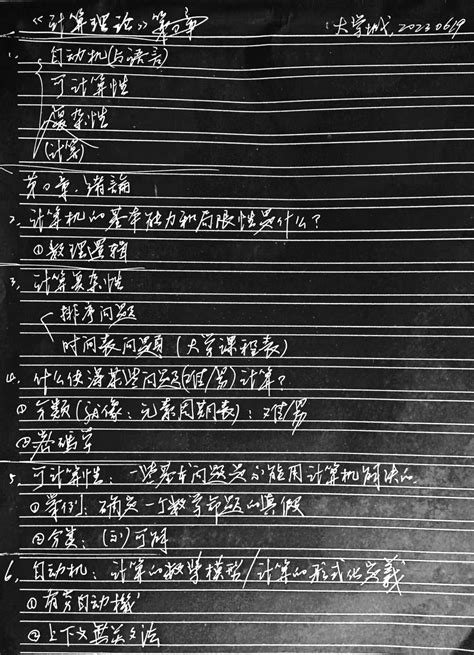 《计算理论》第0章 :大学城,20230619
1. 自动机(与语言)
可计算性
復杂性
(计算)
第0章.绪論
2. 计算机的基本能力和局限性是什么?
①数理邏輯
3. 计算复杂性
排序问题
时间表问题(大学课程表)
4. 什么使得某些问题(难/易)计算?
①分类(就像:元素周期表):难/易
②密码学
5. 可计算性:一些基本问题是不能用计算机解决的.
①举例:确定一个数学命题的真假
②分类:(不)可解
6. 自动机:计算的数学模型/计算的形式化定義
①有穷自动機
②上下文無关文法